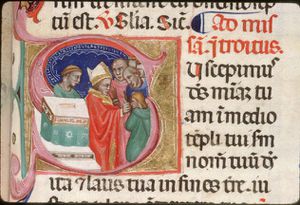 tū est. ℣ Gl̄ia. Sic̄ Ad mis
sā. ītroitus.
Uscepimus
d̄s miaȝ tu
am i medio
tēpli tui sm
nom̄ tuū d̄s
ita ⁊ laus tua in fines tr̄e. iu